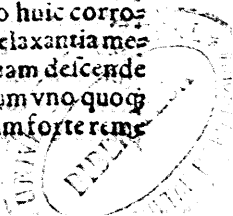 o huic corros
elaxantia mes
eam descende
um vno quoqꝫ
mforte reme